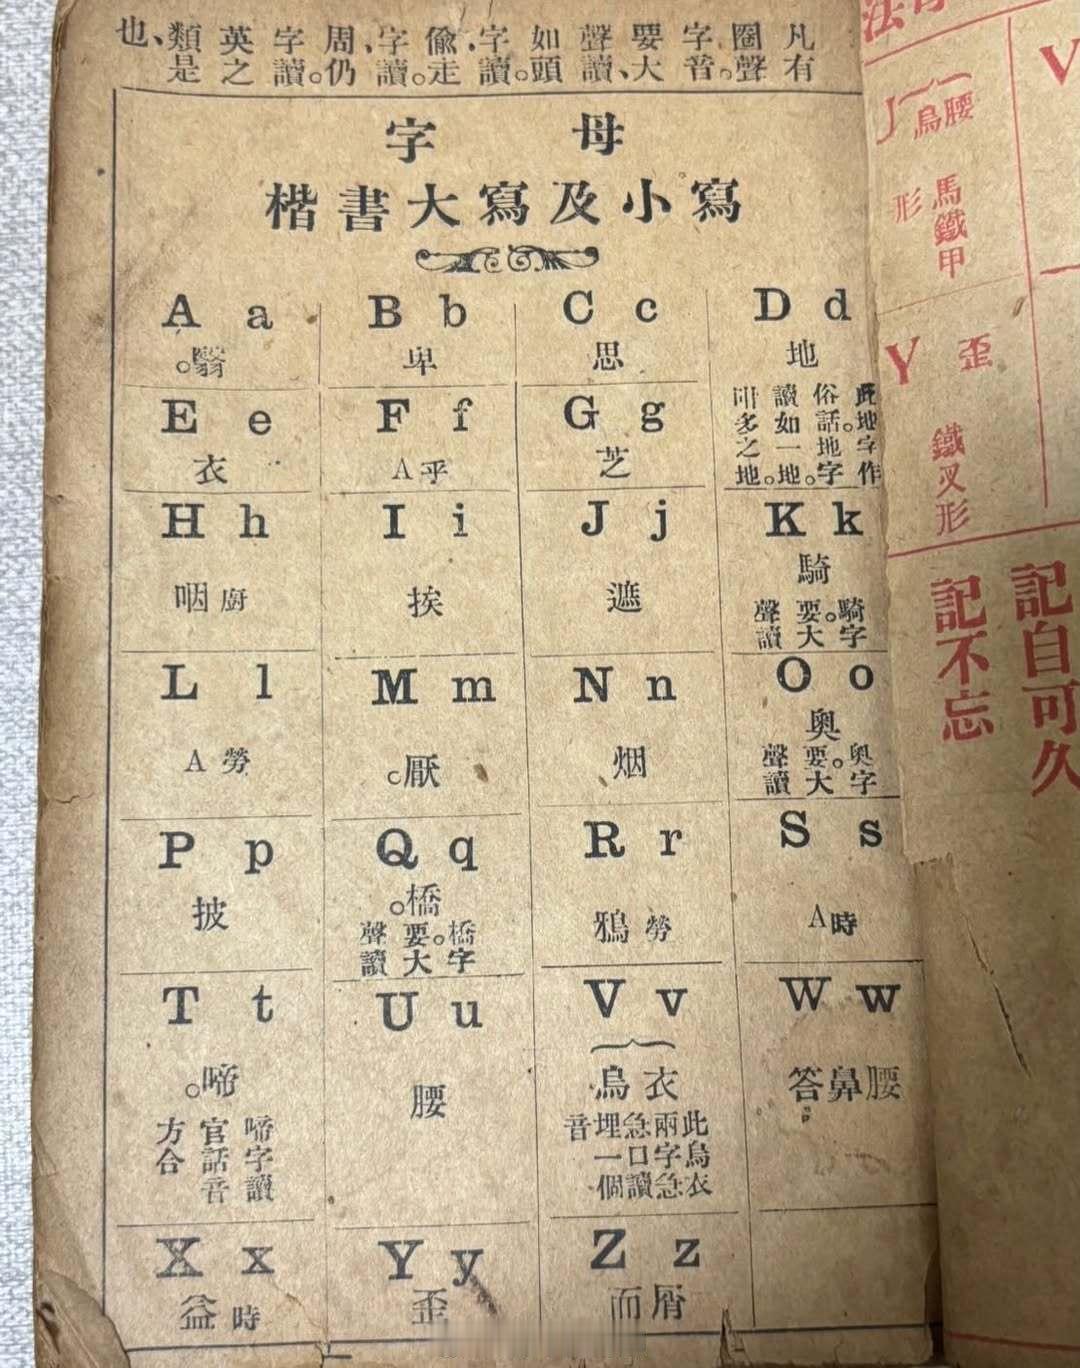 凡有
圈聲。
字音
要大
聲讀、
如頭
字,讀。
偸走
字,讀。
周、仍
字讀。
英之
類、是
也
字母
楷書大寫及小寫
A a
。翳
B b
卑
C c
思
D d
地
此地字作
俗話。地字
讀如一地。
叫多之地。
E e
衣
F f
A乎
G g
芝
H h
咽廚
I i
挨
J j
遮
K k
騎
騎字
要。大
聲讀
L l
A勞
M m
。厭
N n
烟
O o
奧
奧字
要。大
聲讀
P p
披
Q q
。橋
橋字
要。大
聲讀
R r
鴉勞
S s
A時
T t
。啼
啼字讀
官話音
方合
U u
腰
V v
烏衣
此烏衣
兩字急
急口讀
埋一個
音
W w
答鼻腰
X x
益時
Y y
歪
Z z
而屑
法
V
J
烏腰
馬鐵甲
形
Y
歪
鐵叉形
記自可久
記不忘